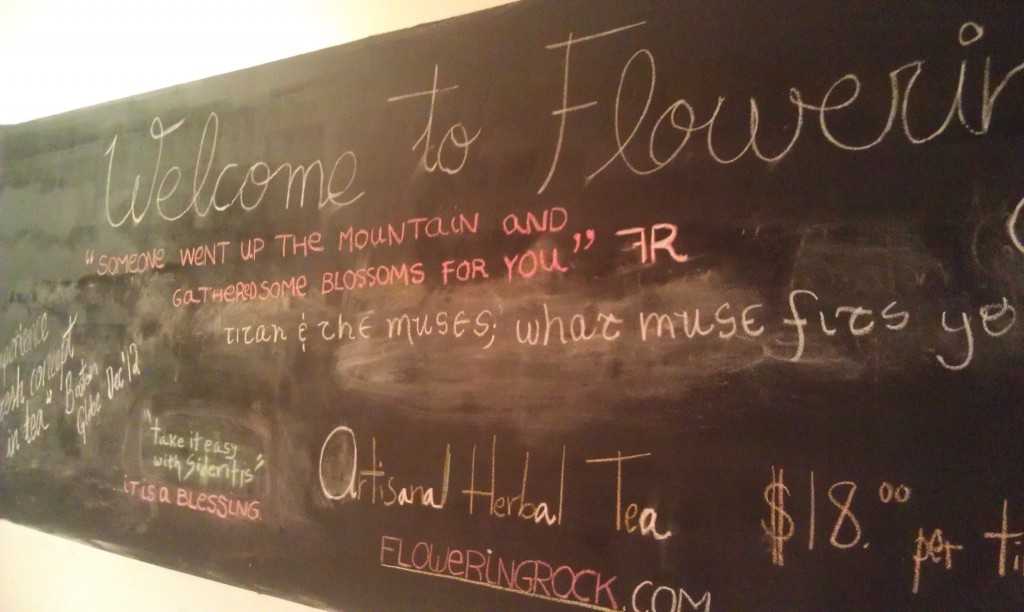 Welcome to Flowerin
"SOMEONE WENT UP THE MOUNTAIN AND
GATHERED SOME BLOSSOMS FOR YOU" FR
TITAN & THE MUSES; WHAT MUSE FITS yo
perience
esh concept
in tea" Boston
Globe Dec '12
"Take it easy
with Sideritis"
...IT IS A BLESSING.
Artisanal Herbal Tea
$18.00 per ti
FLOWERINGROCK.COM